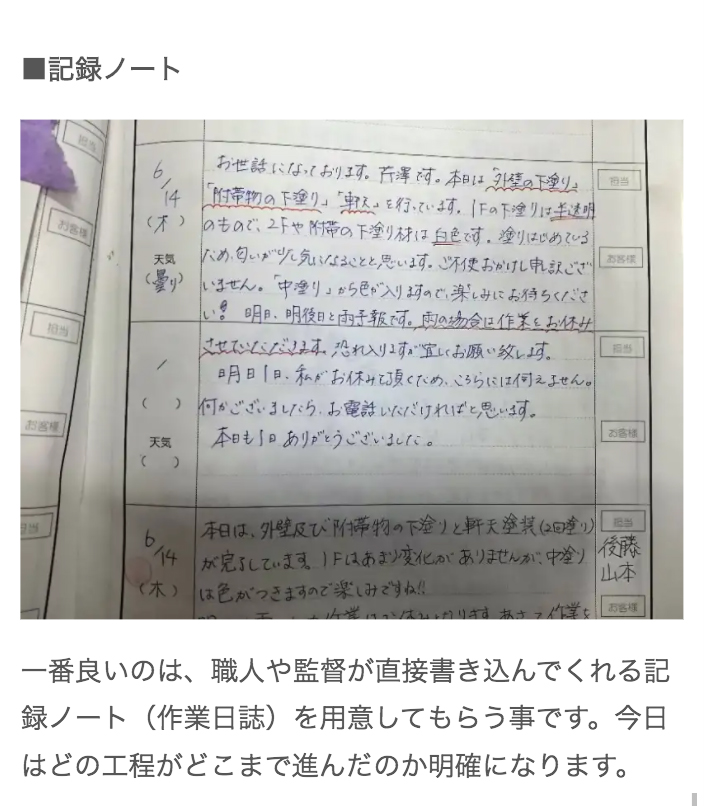 ■記録ノート
担当
お客様
担当
お客様
担当
6/14
(木)
天気
(曇り)
お世話になっております。芹澤です。本日は「外壁の下塗り」
「附帯物の下塗り」「軒天」を行っています。1Fの下塗りは半透明
のもので、2Fや附帯の下塗り材は白色です。塗りはじめている
ため、匂いが少し気になることと思います。ご不便おかけし申し訳ござ
いません。「中塗り」から色が入りますので、楽しみにお待ちくださ
い!! 明日、明後日と雨予報です。雨の場合は作業をお休み
担当
お客様
/
( )
天気
( )
させていただきます。恐れ入りますが宜しくお願い致します。
明日1日、私がお休みで頂くため、こちらには伺えません。
何かございましたら、お電話いただければと思います。
本日も1日ありがとうございました。
担当
お客様
6/14
(木)
本日は、外壁及び附帯物の下塗りと軒天塗装(2回塗り)
が完了しています。1Fはあまり変化がありませんが、中塗り
は色がつきますので楽しみですね!!
担当
後藤
山本
お客様
一番良いのは、職人や監督が直接書き込んでくれる記
録ノート（作業日誌）を用意してもらう事です。今日
はどの工程がどこまで進んだのか明確になります。